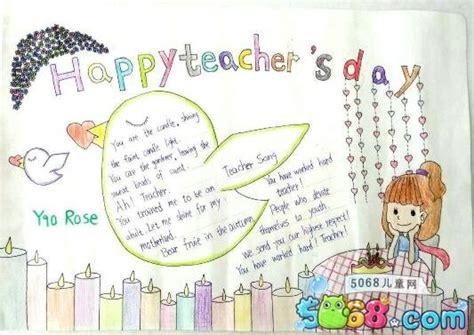 Happy teacher's day
You are the candle, shining
the faint candle light.
You are the gardener, leaving the
sweet kinds of word.
Ah! Treacher.
You crowned me to be an
adult. Let me shine for my
motherland.
Bear fruit in the autumn.
Teacher Song
You have worked hard
teacher!
People who devote
themselves to youth.
We send you our highest respect!
You have worked hard! Teacher!
Yao Rose
5068儿童网
5068.com